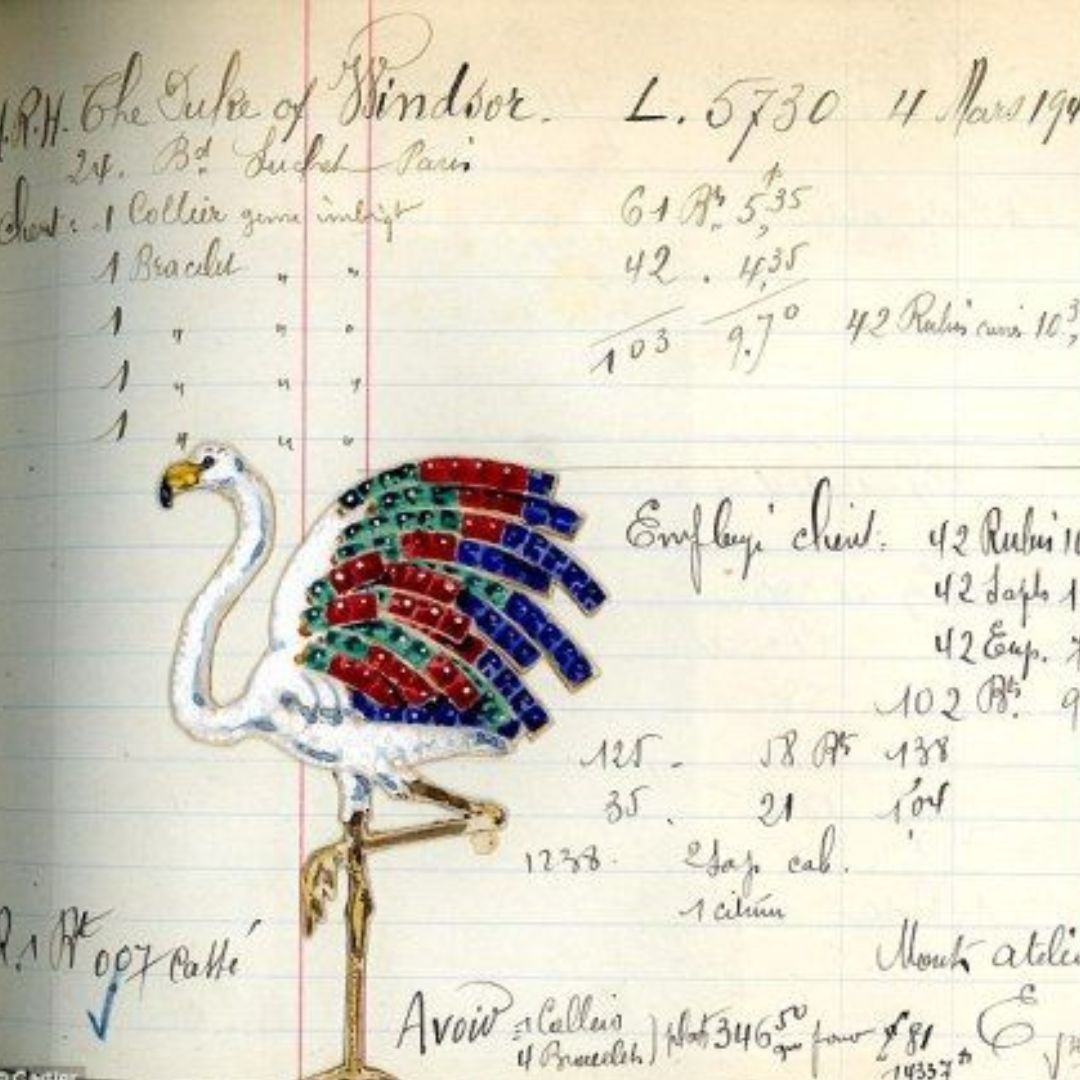 H.R.H. The Duke of Windsor. L. 5730 4 Mars 194
24. Bd Suchet Paris
Client: 1 Collier 61 Bts 5,35
1 Bracelet " " 42 . 4,35
1 " " " 103 9.70 42 Rubis 10,3
1 " " "
1 " " "
client: 42 Rubis 10
42 Saphs 1
42 Em. 7
102 Bts. 9
125 - 58 Bts 138
35 . 21 1,04
1238. 2 Sap. cab.
1 citrin
R. 1 Bt 007 Cassé
atelie
Avoir = 1 Colliers
4 Bracelets ) plat 346,50 pour £81
14337
© Cartier